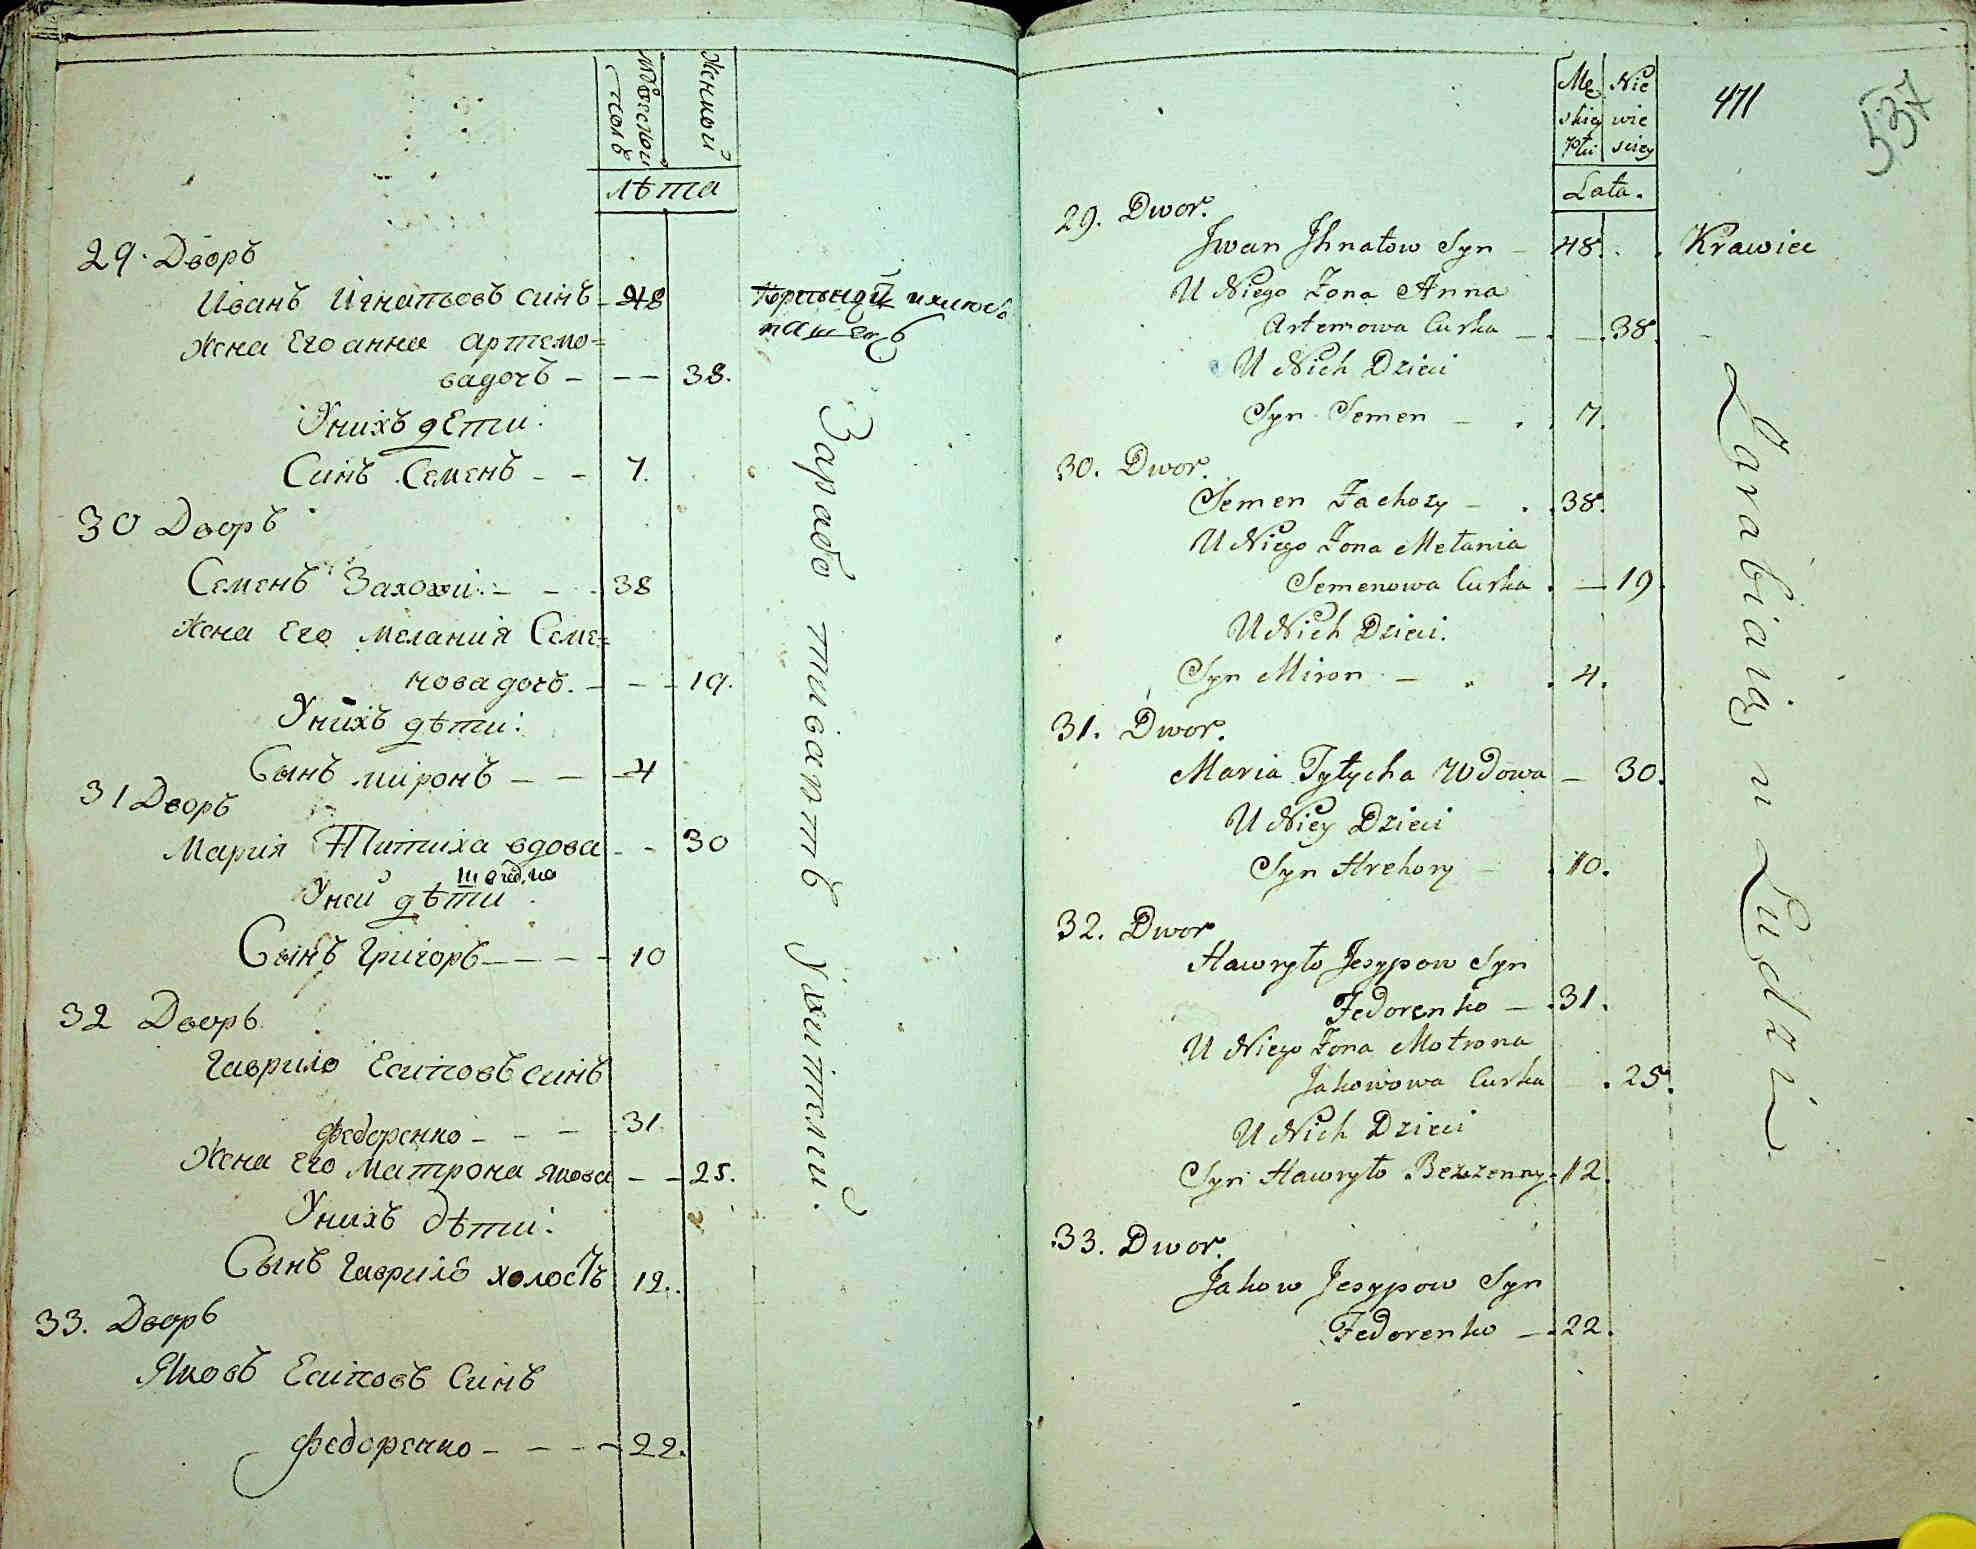 Мужеской
полъ
Женской
лѣта
29. Дворъ
Иванъ Игнатовъ синъ - 48
Жена Его анна артемо=
вадочъ - - - 38.
Унихъ дЕти:
Синъ Семенъ - - 7.
30 Дворъ
Семенъ Захожи - - 38
Жена Его мелания Семе=
нова дочъ. - - - 19.
Унихъ дѣти:
Сынъ миронъ - - 4
31 Дворъ
Мария Титиха вдова - - 30
Уней дѣти
Сынъ Григоръ - - - - 10
32 Дворъ
Гаврило Есиповъ синъ
федоренко - - - 31.
Жена Его Матрона якова - - 25.
Унихъ дѣти:
Сынъ Гаврило холостъ 12.
33. Дворъ
Яковъ Есиповъ Синъ
федоренко - - - - 22.
Зарабо тиваютъ Ужителей.
471
537
Mę Nie
skiey wie
Płci sciey
Lata.
29. Dwor.
Jwan Jhnatow Syn - 48. Krawiec
U Niego Zona Anna
Artemowa Curka - - 38.
U Nich Dzieci
Syn Semen - 7.
30. Dwor.
Semen Zachozy - 38.
U Niego Zona Mełania
Semenowa Curka - 19.
U Nich Dzieci.
Syn Miron - 4.
31. Dwor.
Maria Tytycha Wdowa - 30.
U Niey Dzieci
Syn Hrehory - 10.
32. Dwor
Hawryło Jesypow Syn
Fedorenko - 31.
U Niego Zona Motrona
Jakowowa Curka - 25.
U Nich Dzieci
Syn Hawryło Bezzenny - 12.
33. Dwor.
Jakow Jesypow Syn
Fedorenko - 22.
Zarabiaią u Ludzi